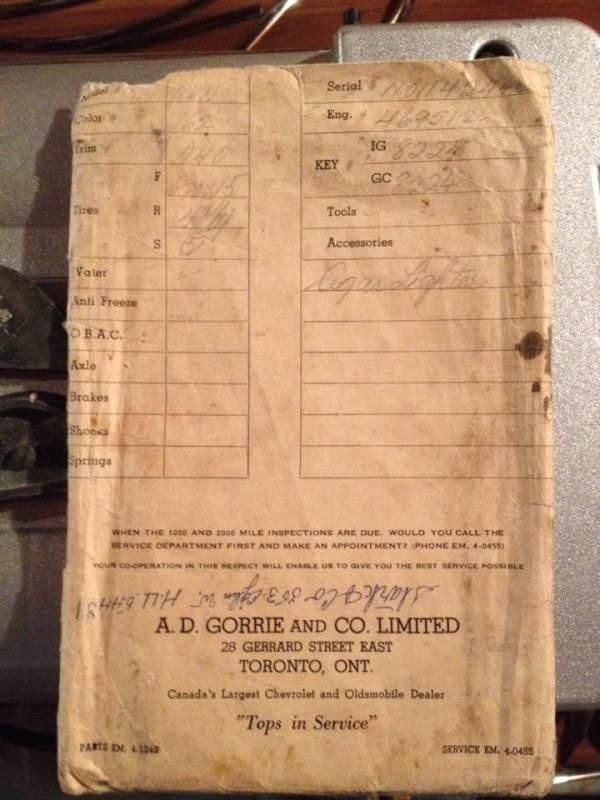 Model
Serial #
Color # 62
Eng. # 469512
Trim 440
KEY # IG 8224
GC 8224
F
Tires R
S
Tools
Accessories
Water
Cigar Lighter
Anti Freeze
O.B.A.C.
Axle
Brakes
Shocks
Springs
WHEN THE 1000 AND 2000 MILE INSPECTIONS ARE DUE. WOULD YOU CALL THE
SERVICE DEPARTMENT FIRST AND MAKE AN APPOINTMENT? (PHONE EM. 4-0455)
YOUR CO-OPERATION IN THIS RESPECT WILL ENABLE US TO GIVE YOU THE BEST SERVICE POSSIBLE
A. D. GORRIE AND CO. LIMITED
28 GERRARD STREET EAST
TORONTO, ONT.
Canada's Largest Chevrolet and Oldsmobile Dealer
"Tops in Service"
PARTS EM. 4-1248
SERVICE EM. 4-0455